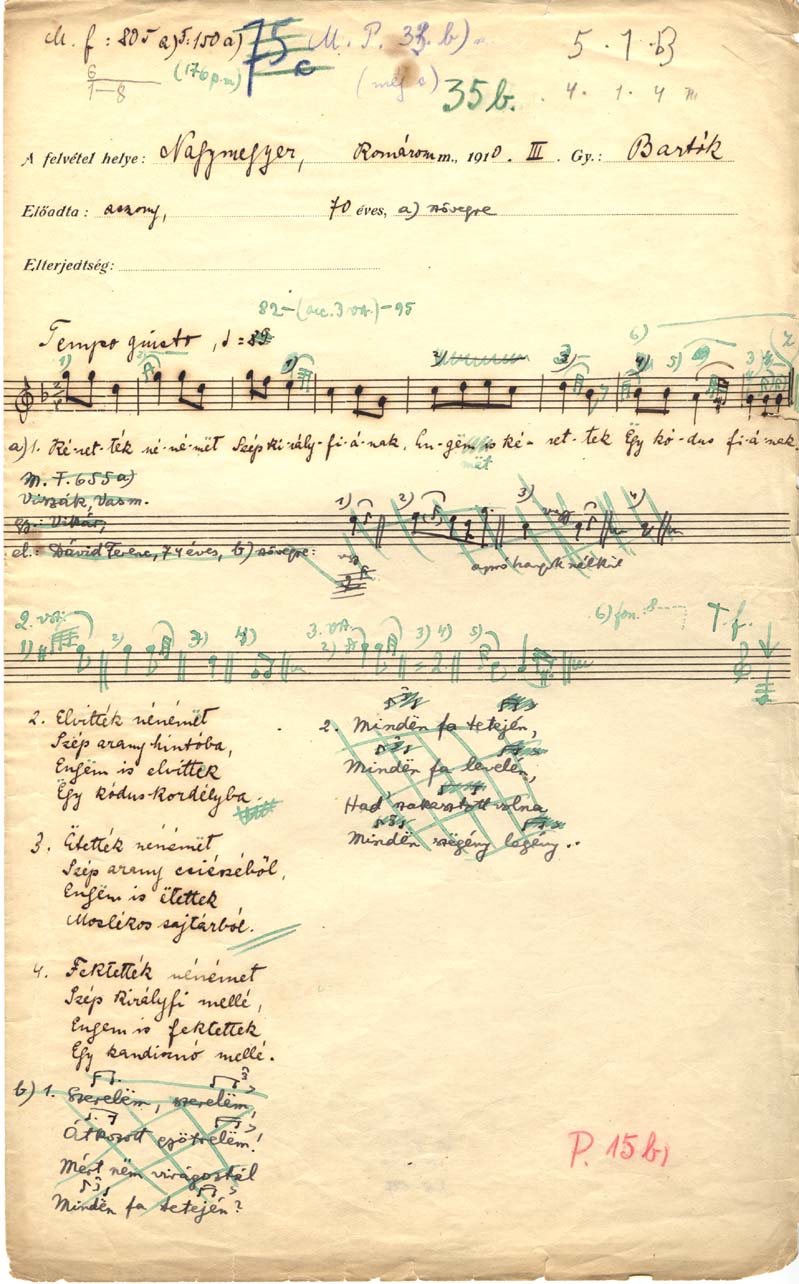 M. f: 805 a) 5:150 a) 75 c M. P. 33. b) 5.1.B
6
1-8 (176 p.m) (még a) 35 b. 4. 1. 4
A felvétel helye: Nagymegyer, Komárom m., 1910. III. Gy.: Bartók
Előadta: asszony, 70 éves, a) szövegre
Elterjedtség:
82-(acc. 3 vsz.)-95
Tempo giusto,
a) 1. Kérettëk nénémët Szép királyfiának, Engëm is kérettek Egy kódus fiának.
mët
M. F. 655 a)
Viszák, Vas m.
gy.: Vikár,
el.: Dávid Ferenc, 74 éves, b) szövegre:
1) 2) 3) vagy 4)
vagy
apró hangok nélkül
2. vsz. 3. vsz. 6) fon.: 8 T. f.
1) 2) 3) 4) 2) 3) 4) 5)
2. Elvitték nénémët
Szép arany hintóba,
Engëm is elvittek
Egy kódus kordélyba.
3. Ëtették nénémët
Szép arany csészéből,
Engëm is ëtettek
Moslékos sajtárból.
4. Fektették nénémet
Szép királyfi mellé,
Engem is fektettek
Egy kandisznó mellé.
b) 1. Szerelëm, szerelëm,
Átkozott gyötrelëm!
Mért nëm virágoztál
Mindën fa tetején?
2. Mindën fa tetején,
Mindën fa levelén,
Had' szakasztott volna
Mindën szëgény legény..
P. 15 b)